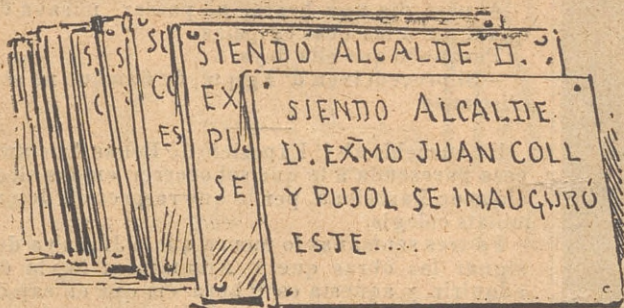 S
S
SI
SIENDO ALCALDE D.
C
CO
EX
ES
PU
SE
SIENDO ALCALDE
D. EXMO JUAN COLL
Y PUJOL SE INAUGURÓ
ESTE.....